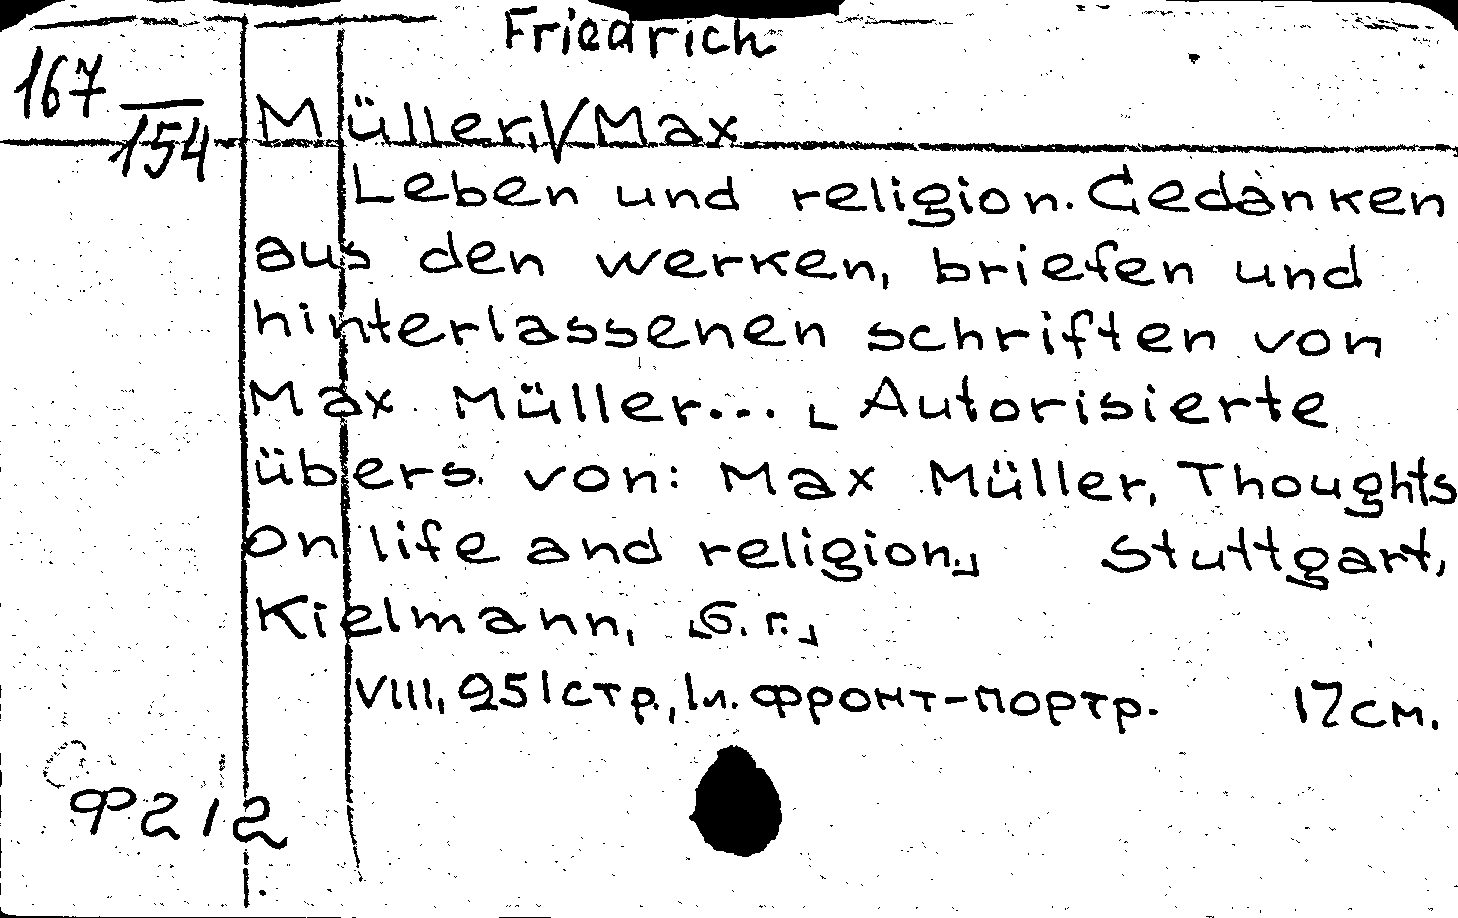 Friedrich
167
154
Müller, √ Max
Leben und religion. Gedanken
aus den werken, briefen und
hinterlassenen schriften von
Max Müller... [Autorisierte
übers. von: Max Müller, Thoughts
on life and religion.] Stuttgart,
Kielmann, [S. г.]
VIII, 251 стр., 1 л. фронт-портр. 17 см.
Ф 212